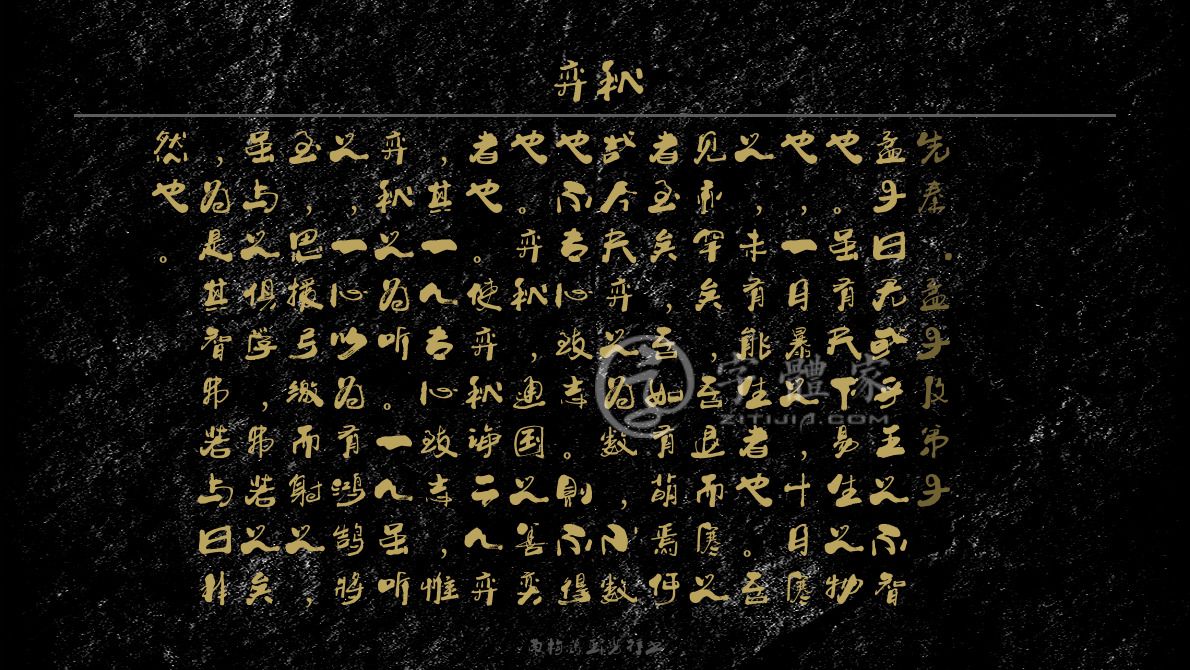 弈秋
先秦·孟子及弟子
孟子曰无或乎王之不智
也。虽有天下易生之物
也,一日暴之,十日寒
之,未有能生者也。吾
见亦罕矣,吾退而寒之
者至矣,吾如有萌焉何
哉今夫弈之为数,小数
也不专心致志。则不得
也。弈秋,通国之善奕
者也。使弈秋诲二人弈
,其一人专心致志,惟
弈秋之为听。一人虽听
之,一心以为有鸿鹄将
至,思援弓缴而射之,
虽与之俱学,弗若之矣
,为是其智弗若与曰非
然也。
字體家
ZITIJIA.COM